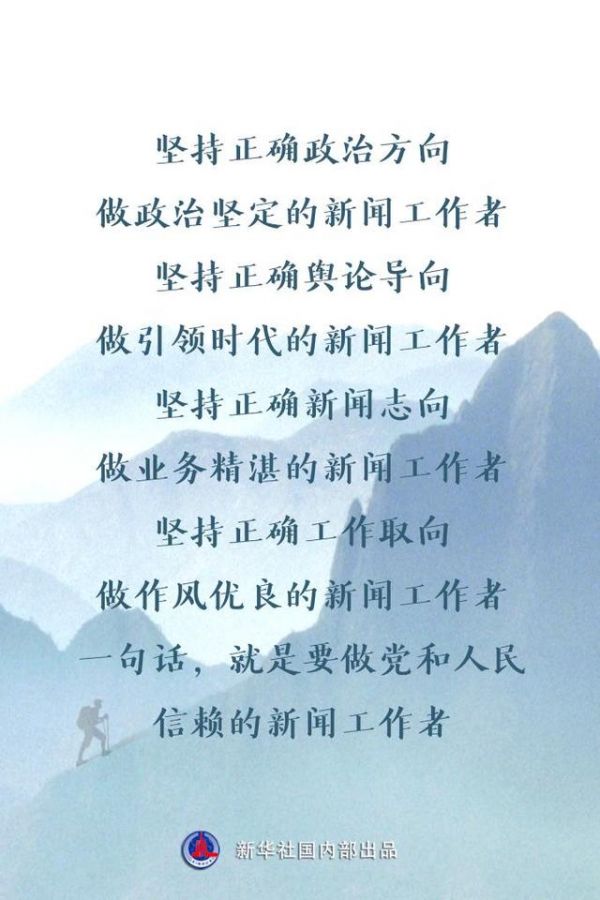 坚持正确政治方向
做政治坚定的新闻工作者
坚持正确舆论导向
做引领时代的新闻工作者
坚持正确新闻志向
做业务精湛的新闻工作者
坚持正确工作取向
做作风优良的新闻工作者
一句话，就是要做党和人民
信赖的新闻工作者
新华社国内部出品